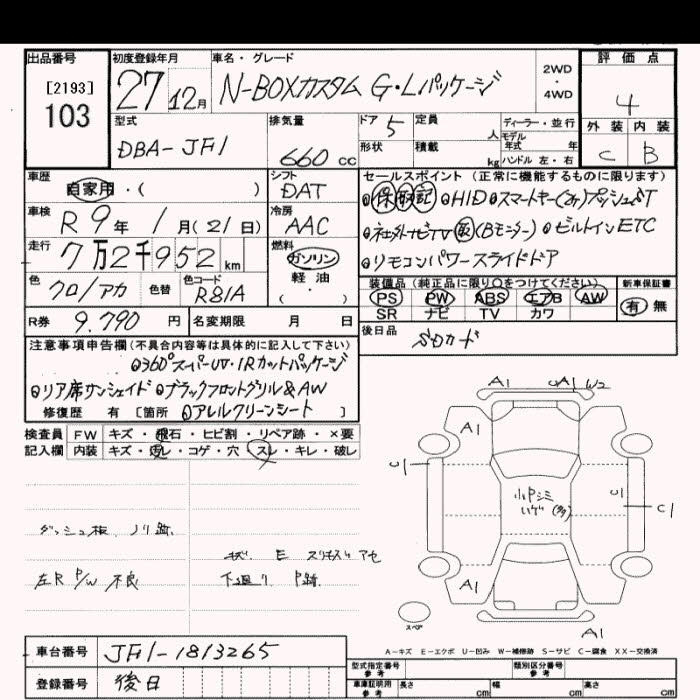 出品番号 初度登録年月 車名・グレード 評価点
[2193]
103
27 12月 N-BOXカスタム G・Lパッケージ
2WD
・
4WD
4
型式 排気量 ドア 定員 ディーラー・並行
DBA-JF1 660 cc 5 人 モデル年式 年
形状 積載 kg ハンドル 左・右
外装 内装
C B
車歴 シフト セールスポイント (正常に機能するものに限ります)
自家用・( ) DAT
保 取 記 HID スマートキー(2ヶ)プッシュST
車検 冷房
R 9年 1月(21日) AAC
(Bモニター) ビルトインETC
走行 燃料
7万2千952 km ガソリン
リモコンパワースライドドア
軽油
( ・ )
色 色替 色コード
クロ/アカ R81A
装備品 (純正品に限り○をつけてください) 新車保証書
PS PW ABS エアB AW
SR ナビ TV カワ
有 無
R券 9,790 円 名変期限 月 日
後日品 SDカード
注意事項申告欄 (不具合内容等は具体的に記入して下さい)
360°スーパーUV・IRカットパッケージ
リア席サンシェイド ブラックフロントグリル&AW
修復歴 有 [箇所 アレルクリーンシート ]
検査員 FW キズ・飛石・ヒビ割・リペア跡・×要
記入欄 内装 キズ・汚レ・コゲ・穴 スレ・キレ・破レ
A1 A1 W2
A1
U1
小Pシミ
U1 C1
ダッシュ板 ノリ跡
キズ E アセ
左R P/W 不良 下廻り P跡
A1
スペア
A1
A-キズ E-エクボ U-凹み W-補修跡 S-サビ C-腐食 XX-交換済
車台番号 JF1-1813265
登録番号 後日
型式指定番号 参考 類別区分番号 参考
車庫証明用 参考 長さ cm 幅 cm 高さ cm